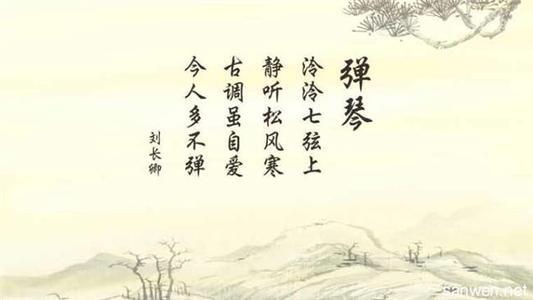 弹琴
泠泠七弦上
静听松风寒
古调虽自爱
今人多不弹
刘长卿
sanwen.net